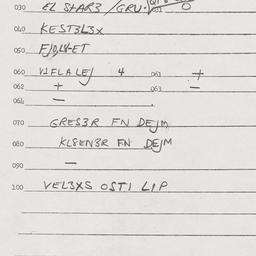 030 EL SHAR3 /GRU. 0
040 KEST3L3X
050
060 V1FLALEJ 4 061 +
062 + 063 −
064 −
070 GRES3R FN DEJM
080 KLSEN3R FN DEJM
090 −
100 VEL3XS OSTI LIP